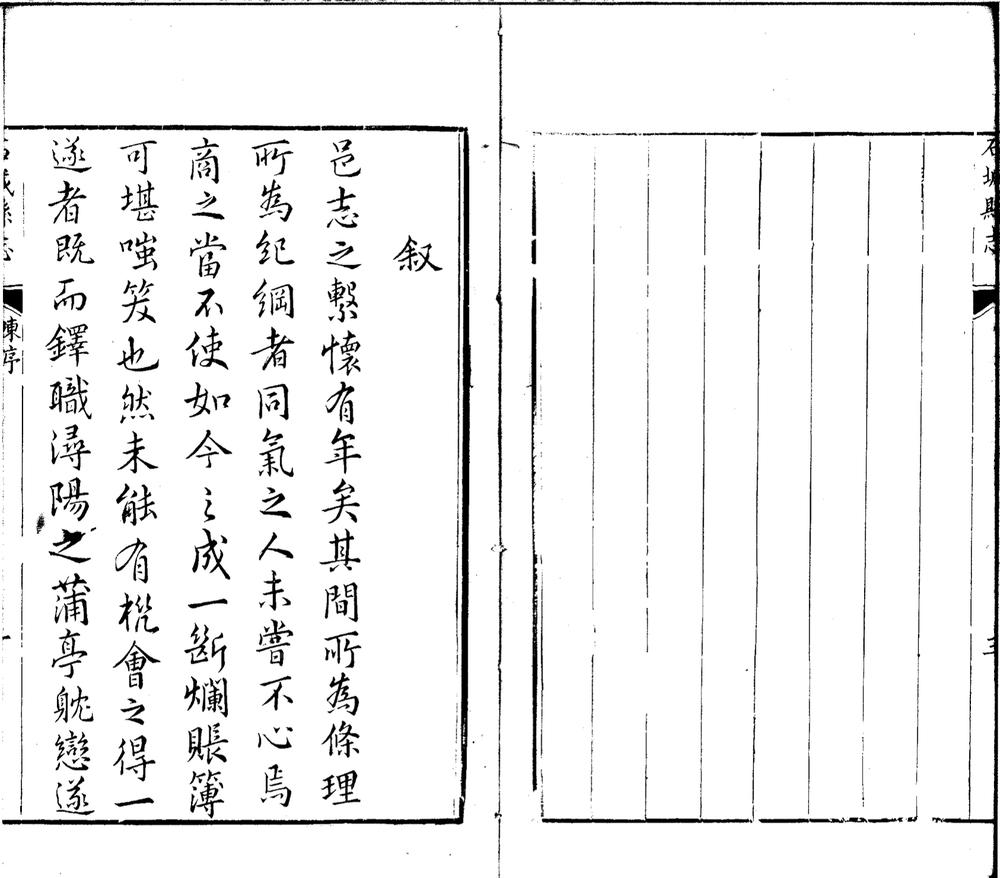 石城縣志
叙
邑志之繫懷有年矣其間所為條理
所為紀綱者同氣之人未嘗不心焉
商之當不使如今之成一斷爛賬簿
可堪嗤笑也然未能有機會之得一
遂者既而鐸職潯陽之蒲亭躭戀遂
石城縣志
陳序